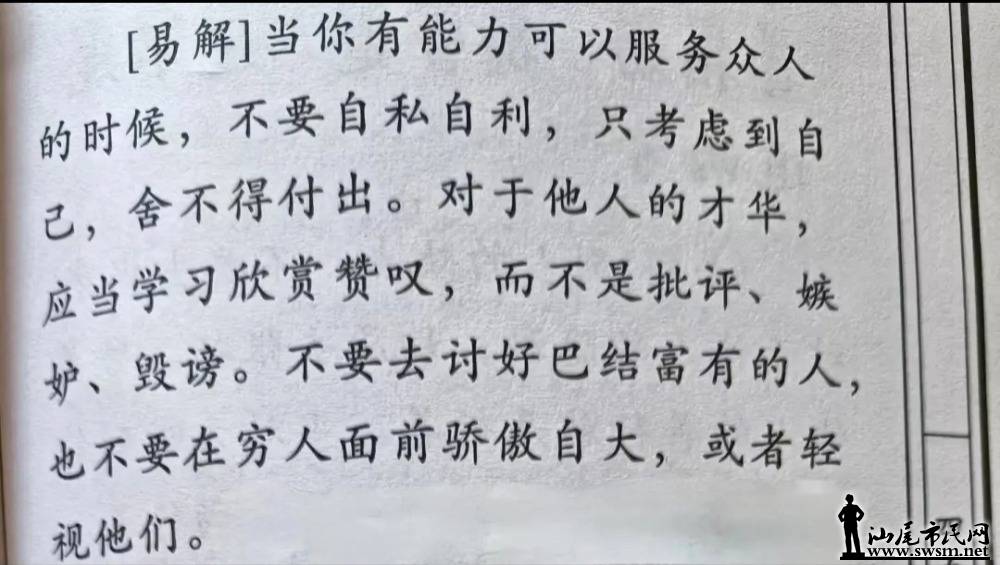 [易解]当你有能力可以服务众人
的时候，不要自私自利，只考虑到自
己，舍不得付出。对于他人的才华，
应当学习欣赏赞叹，而不是批评、嫉
妒、毁谤。不要去讨好巴结富有的人，
也不要在穷人面前骄傲自大，或者轻
视他们。
汕尾市民网
www.swsm.net